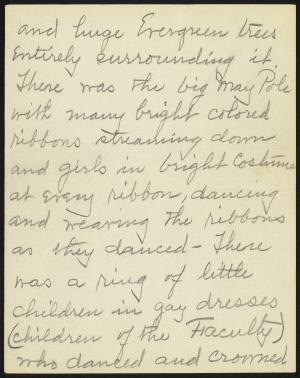 and huge Evergreen trees
Entirely surrounding it.
There was the big May Pole
with many bright colored
ribbons streaming down
and girls in bright Costume
at Every ribbon, dancing
and weaving the ribbons
as they danced - There
was a ring of little
children in gay dresses
(Children of the Faculty)
who danced and crowned